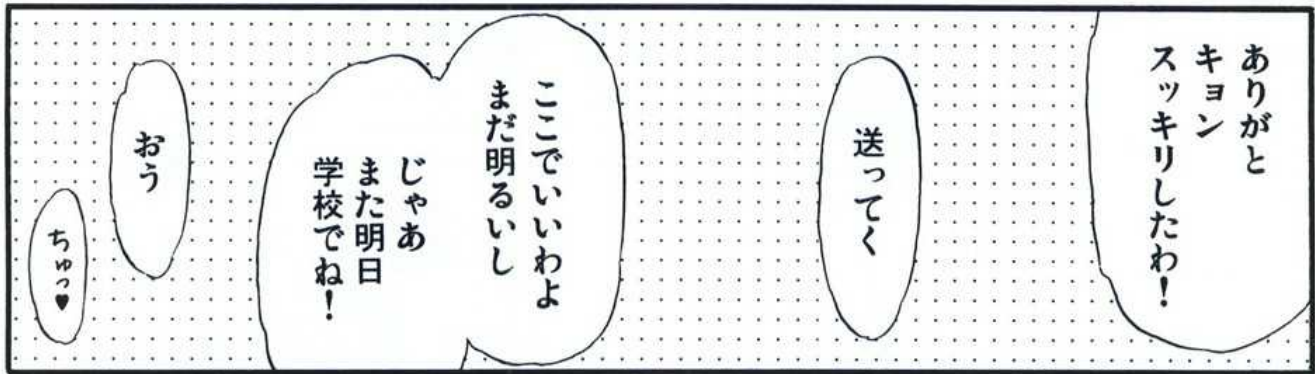 ありがと
キョン
スッキリしたわ！
送ってく
ここでいいわよ
まだ明るいし
じゃあ
また明日
学校でね！
おう
ちゅっ♥